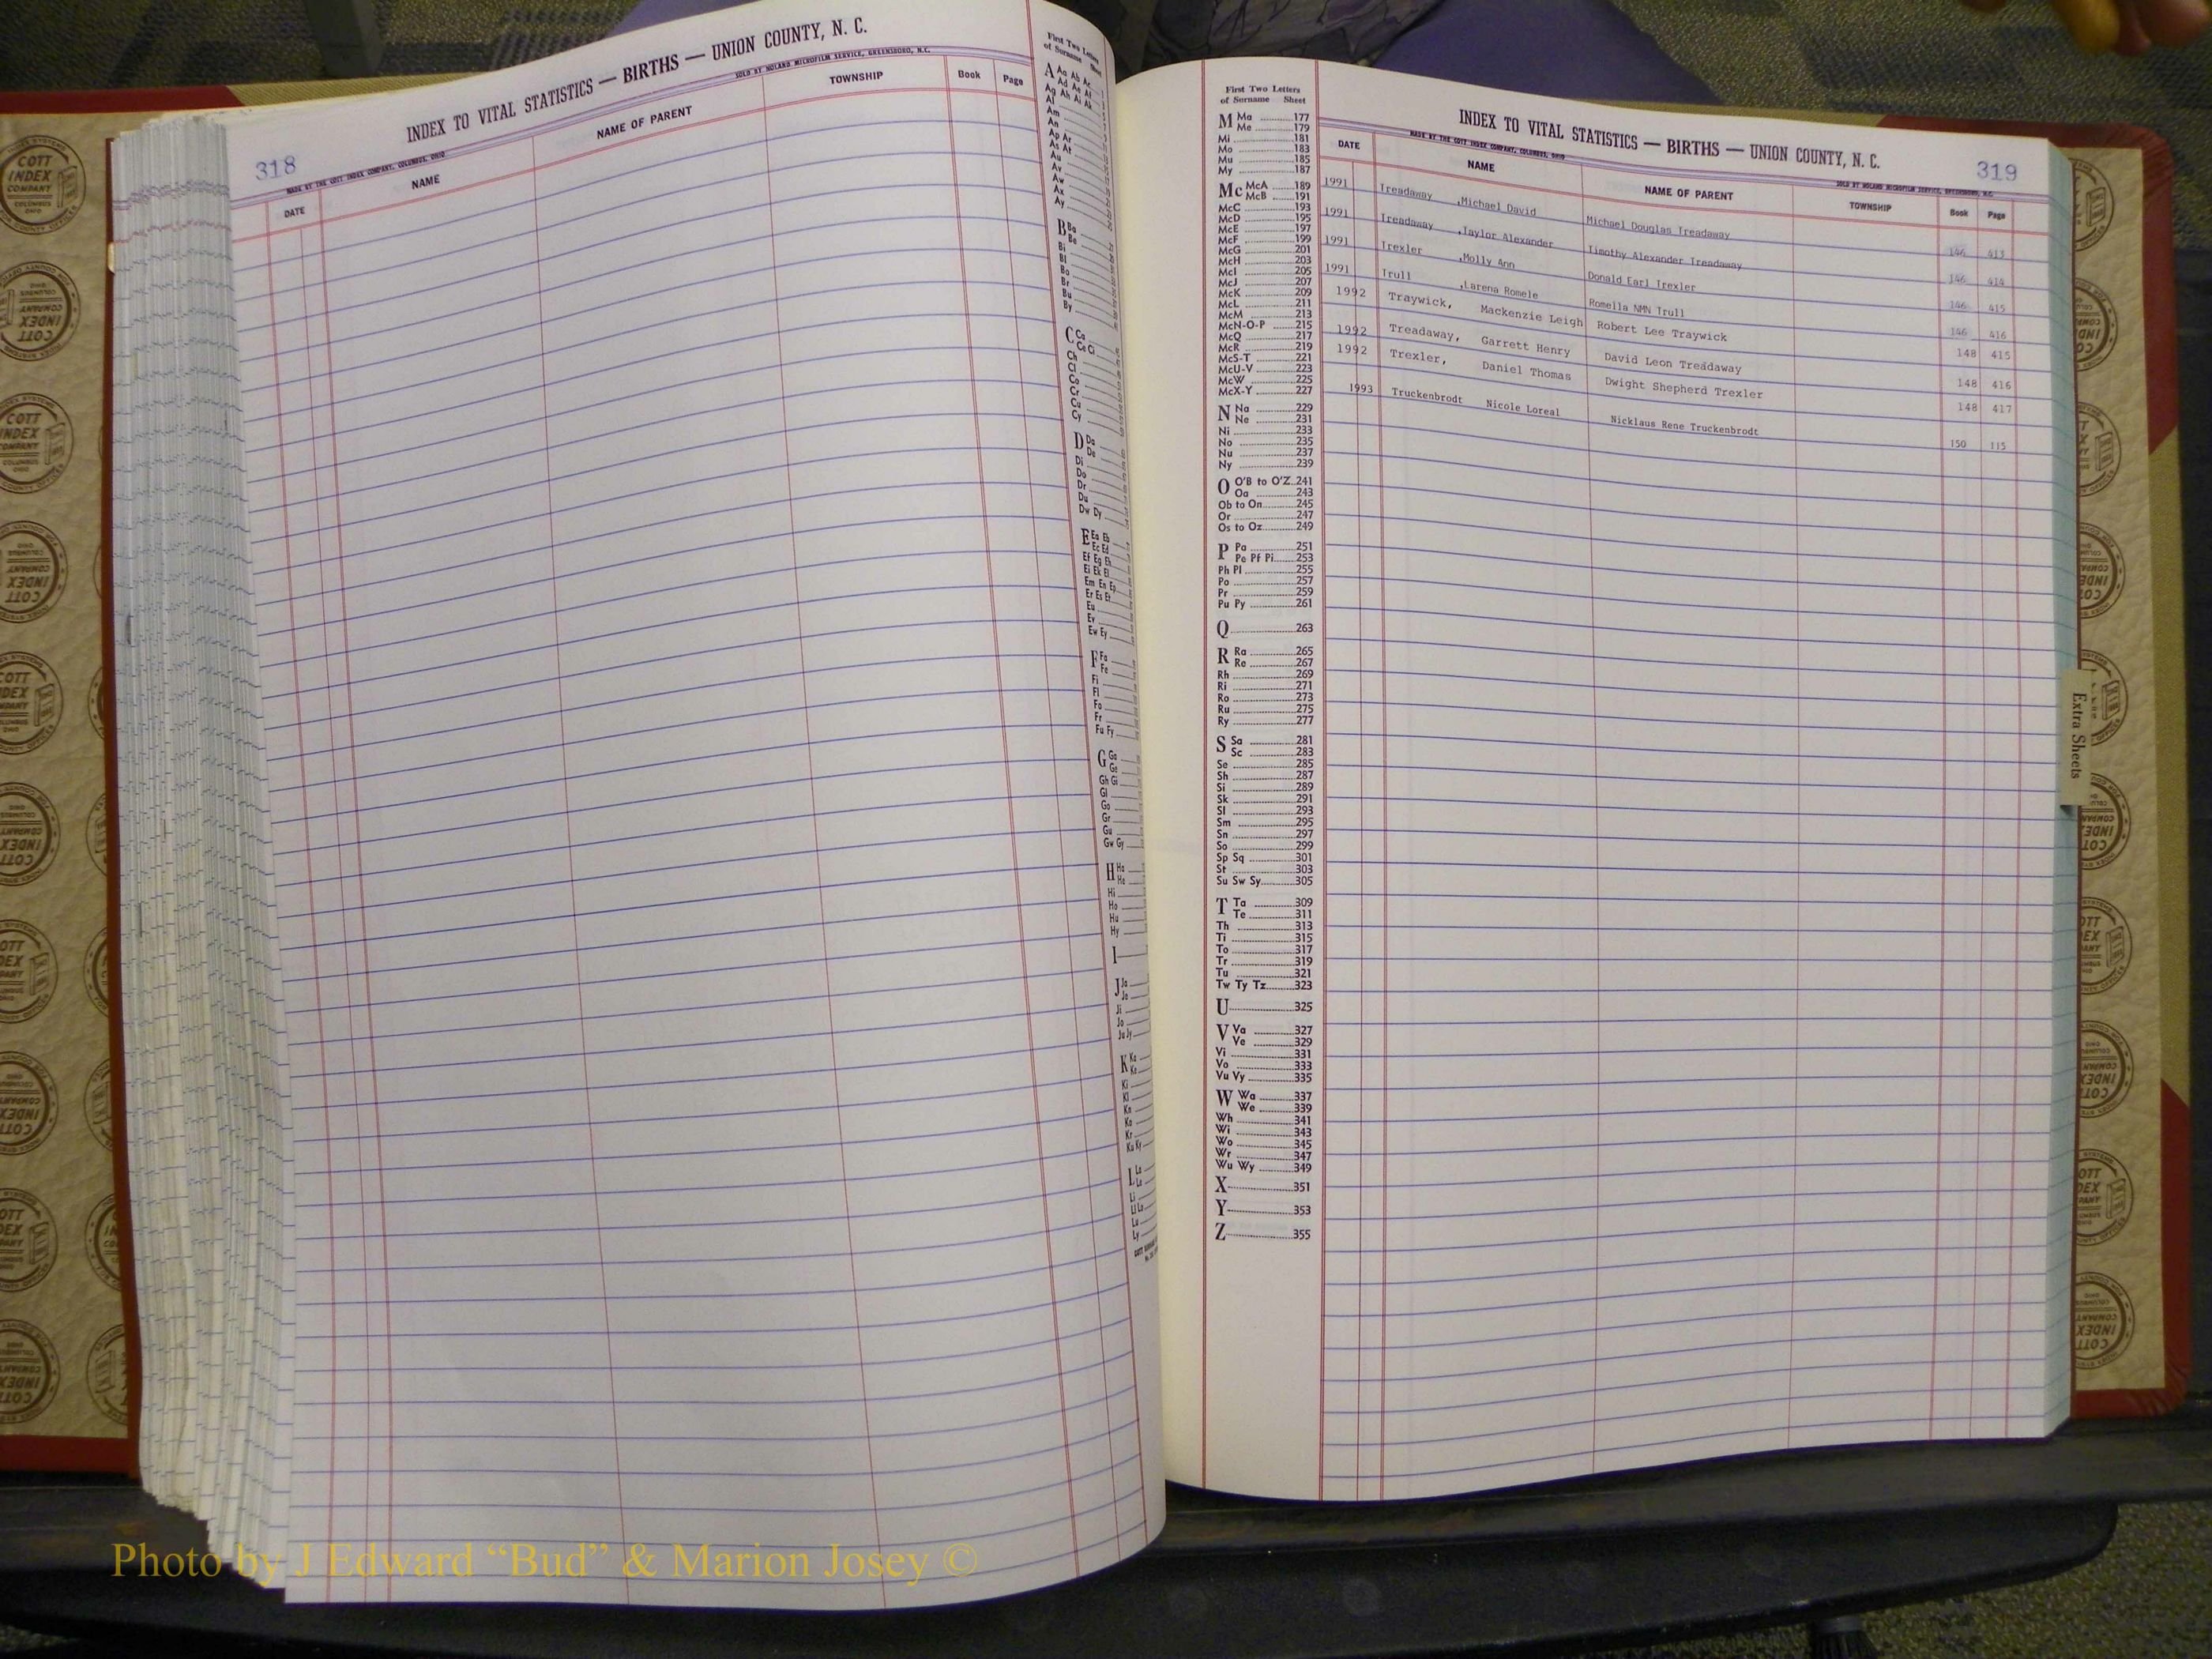 318
INDEX TO VITAL STATISTICS — BIRTHS — UNION COUNTY, N. C.
MADE BY THE COTT INDEX COMPANY, COLUMBUS, OHIO
SOLD BY NOLAND MICROFILM SERVICE, GREENSBORO, N.C.
DATE NAME NAME OF PARENT TOWNSHIP Book Page
First Two Letters
of Surname Sheet
A Aa Ab Ac
Ad Ae Af
Ag Ah Ai Ak
Al
Am
An
Ap Ar
As At
Au
Av
Aw
Ax
Ay
B Ba
Be
Bi
Bl
Bo
Br
Bu
By
C Ca
Ce Ci
Ch
Cl
Co
Cr
Cu
Cy
D Da
De
Di
Do
Dr
Du
Dw Dy
E Ea Eb
Ec Ed
Ef Eg Eh
Ei Ek El
Em En Ep
Er Es Et
Eu
Ev
Ew Ey
F Fa
Fe
Fi
Fl
Fo
Fr
Fu Fy
G Ga
Ge
Gh Gi
Gl
Go
Gr
Gu
Gw Gy
H Ha
He
Hi
Ho
Hu
Hy
I
J Ja
Je
Ji
Jo
Ju Jy
K Ka
Ke
Ki
Kl
Kn
Ko
Kr
Ku Ky
L La
Le
Li
Ll Lo
Lu
Ly
First Two Letters
of Surname Sheet
M Ma 177
Me 179
Mi 181
Mo 183
Mu 185
My 187
Mc McA 189
McB 191
McC 193
McD 195
McE 197
McF 199
McG 201
McH 203
McI 205
McJ 207
McK 209
McL 211
McM 213
McN-O-P 215
McQ 217
McR 219
McS-T 221
McU-V 223
McW 225
McX-Y 227
N Na 229
Ne 231
Ni 233
No 235
Nu 237
Ny 239
O O'B to O'Z 241
Oa 243
Ob to On 245
Or 247
Os to Oz 249
P Pa 251
Pe Pf Pi 253
Ph Pl 255
Po 257
Pr 259
Pu Py 261
Q 263
R Ra 265
Re 267
Rh 269
Ri 271
Ro 273
Ru 275
Ry 277
S Sa 281
Sc 283
Se 285
Sh 287
Si 289
Sk 291
Sl 293
Sm 295
Sn 297
So 299
Sp Sq 301
St 303
Su Sw Sy 305
T Ta 309
Te 311
Th 313
Ti 315
To 317
Tr 319
Tu 321
Tw Ty Tz 323
U 325
V Va 327
Ve 329
Vi 331
Vo 333
Vu Vy 335
W Wa 337
We 339
Wh 341
Wi 343
Wo 345
Wr 347
Wu Wy 349
X 351
Y 353
Z 355
INDEX TO VITAL STATISTICS — BIRTHS — UNION COUNTY, N. C.
319
MADE BY THE COTT INDEX COMPANY, COLUMBUS, OHIO
SOLD BY NOLAND MICROFILM SERVICE, GREENSBORO, N.C.
DATE NAME NAME OF PARENT TOWNSHIP Book Page
1991 Treadaway ,Michael David Michael Douglas Treadaway 146 413
1991 Treadaway ,Taylor Alexander Timothy Alexander Treadaway 146 414
1991 Trexler ,Molly Ann Donald Earl Trexler 146 415
1991 Trull ,Larena Romele Romella NMN Trull 146 416
1992 Traywick, Mackenzie Leigh Robert Lee Traywick 148 415
1992 Treadaway, Garrett Henry David Leon Treadaway 148 416
1992 Trexler, Daniel Thomas Dwight Shepherd Trexler 148 417
1993 Truckenbrodt Nicole Loreal Nicklaus Rene Truckenbrodt 150 115
Extra Sheets
COTT
INDEX
COMPANY
COLUMBUS
OHIO
Photo by J Edward “Bud” & Marion Josey ©